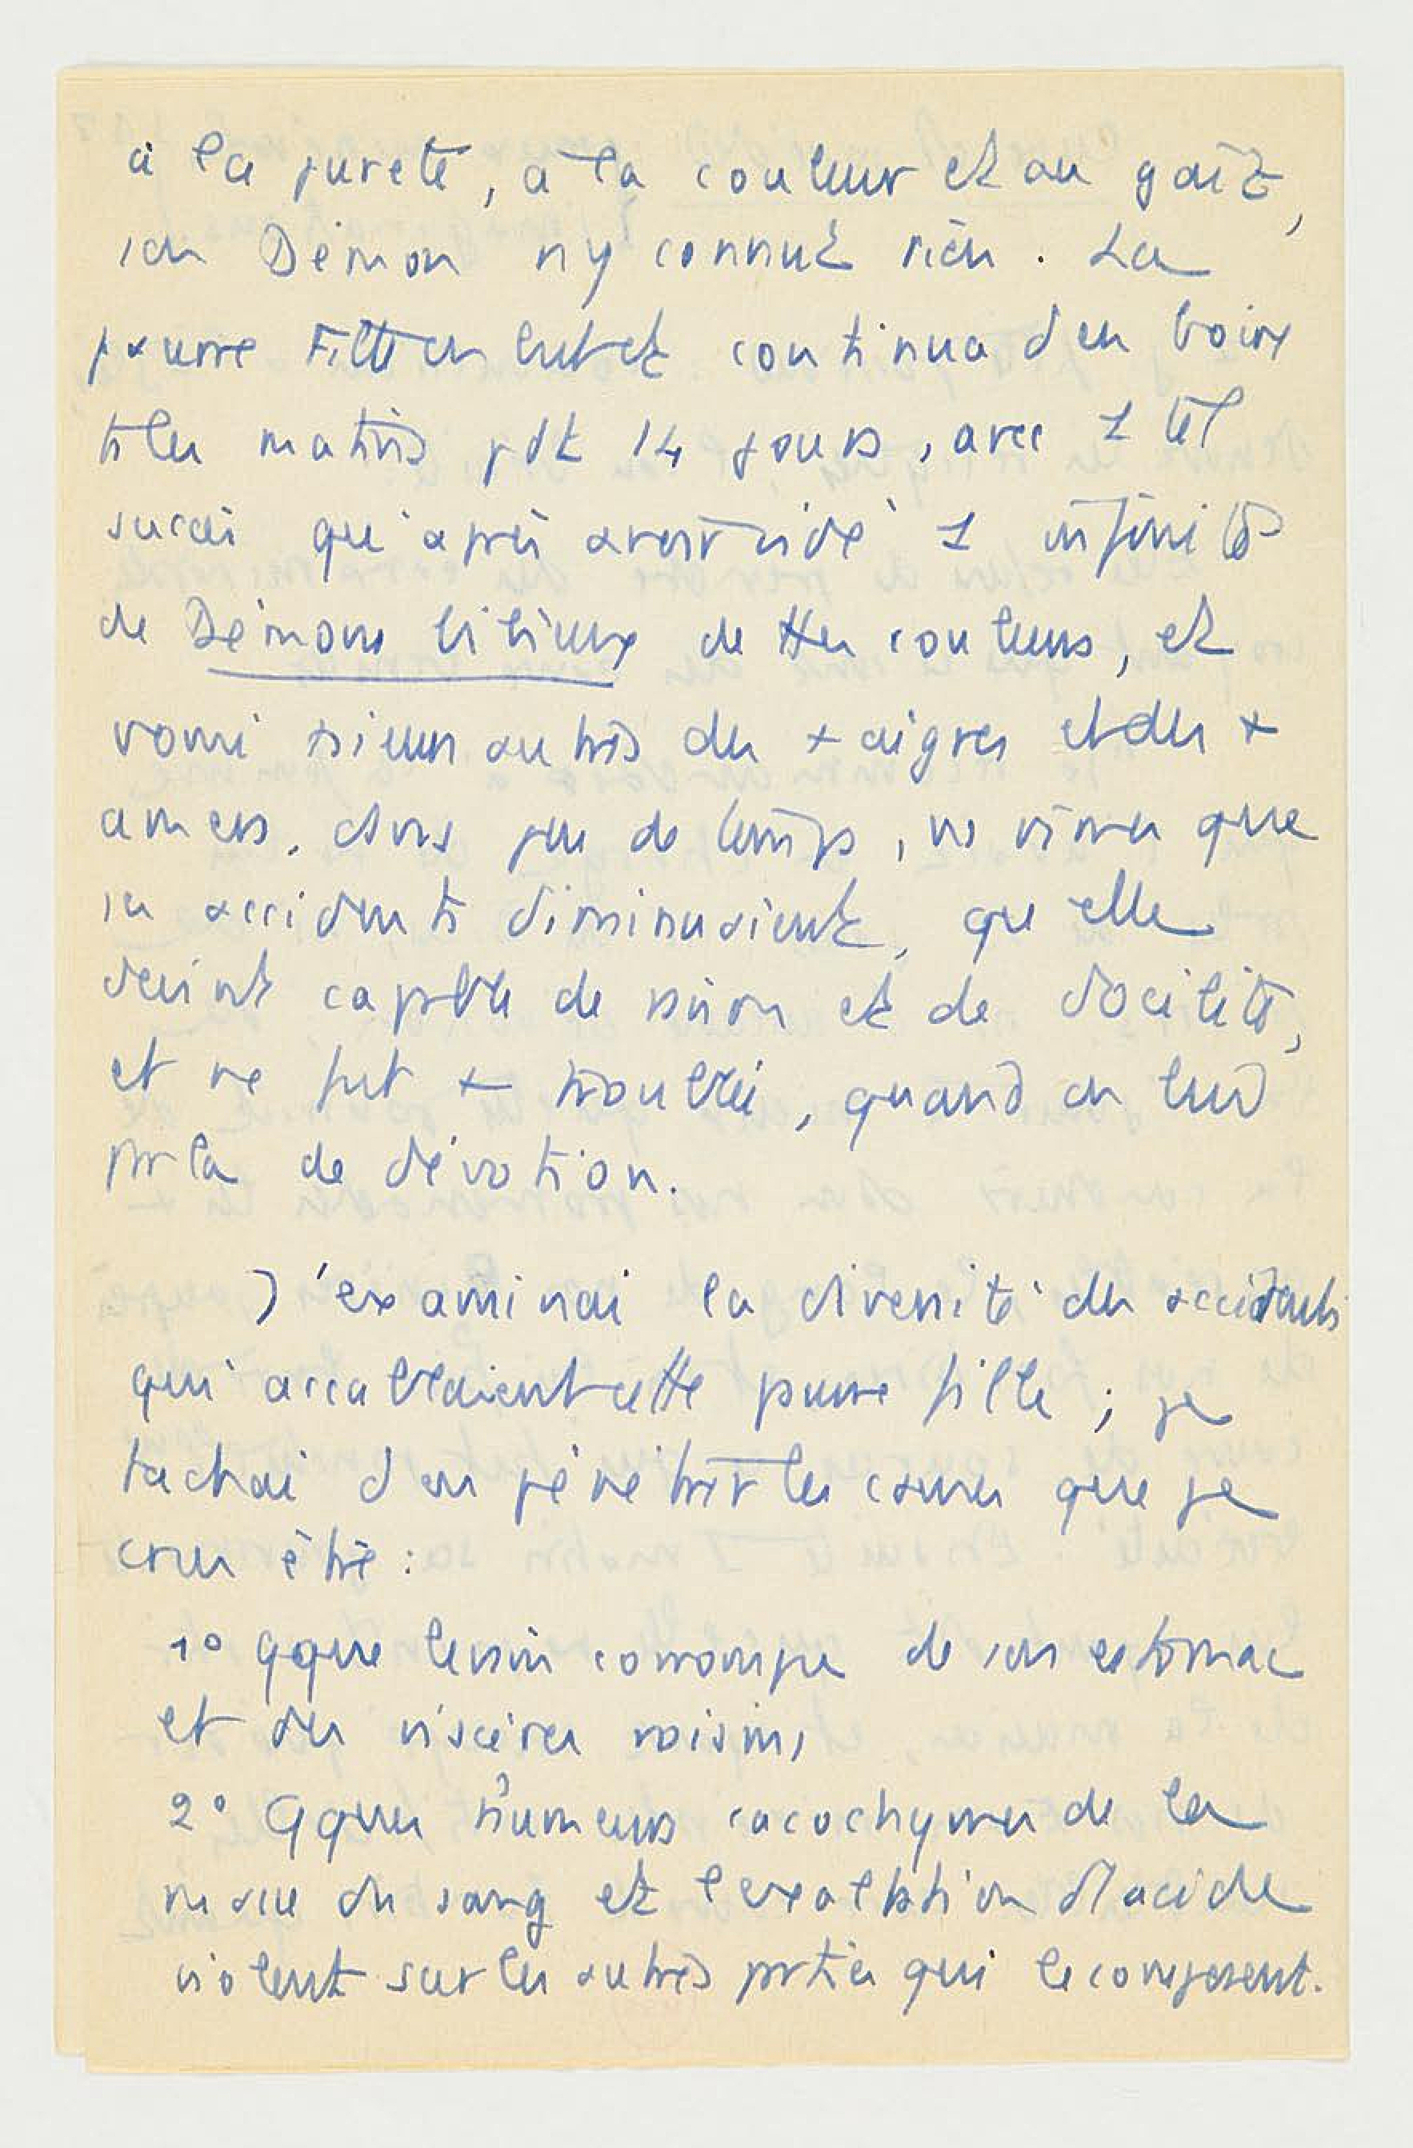 à la pureté, à la couleur et au goût,
son Démon n'y connut rien. La
pauvre Fille en but et continua d'en boire
ts les matins pdt 14 jours, avec 1 tel
succès qu'après avoir vidé 1 infinité
de Démons bilieux de ttes couleurs, et
vomi +sieurs autres des + aigres et des +
amers, dans peu de temps, ns vîmes que
ses accidents diminuaient, qu'elle
devint capable de raison et de docilité,
et ne fut + troublée, quand on lui
parla de dévotion.
J'examinai la diversité des accidents
qui accablaient cette pauvre fille ; je
tachai d'en pénétrer les causes que je
crus être :
1° qque levain corrompu de son estomac
et des viscères voisins,
2° Qques humeurs cacochymes de la
masse du sang et l'exaltation d'1 acide
violent sur les autres parties qui le composent.